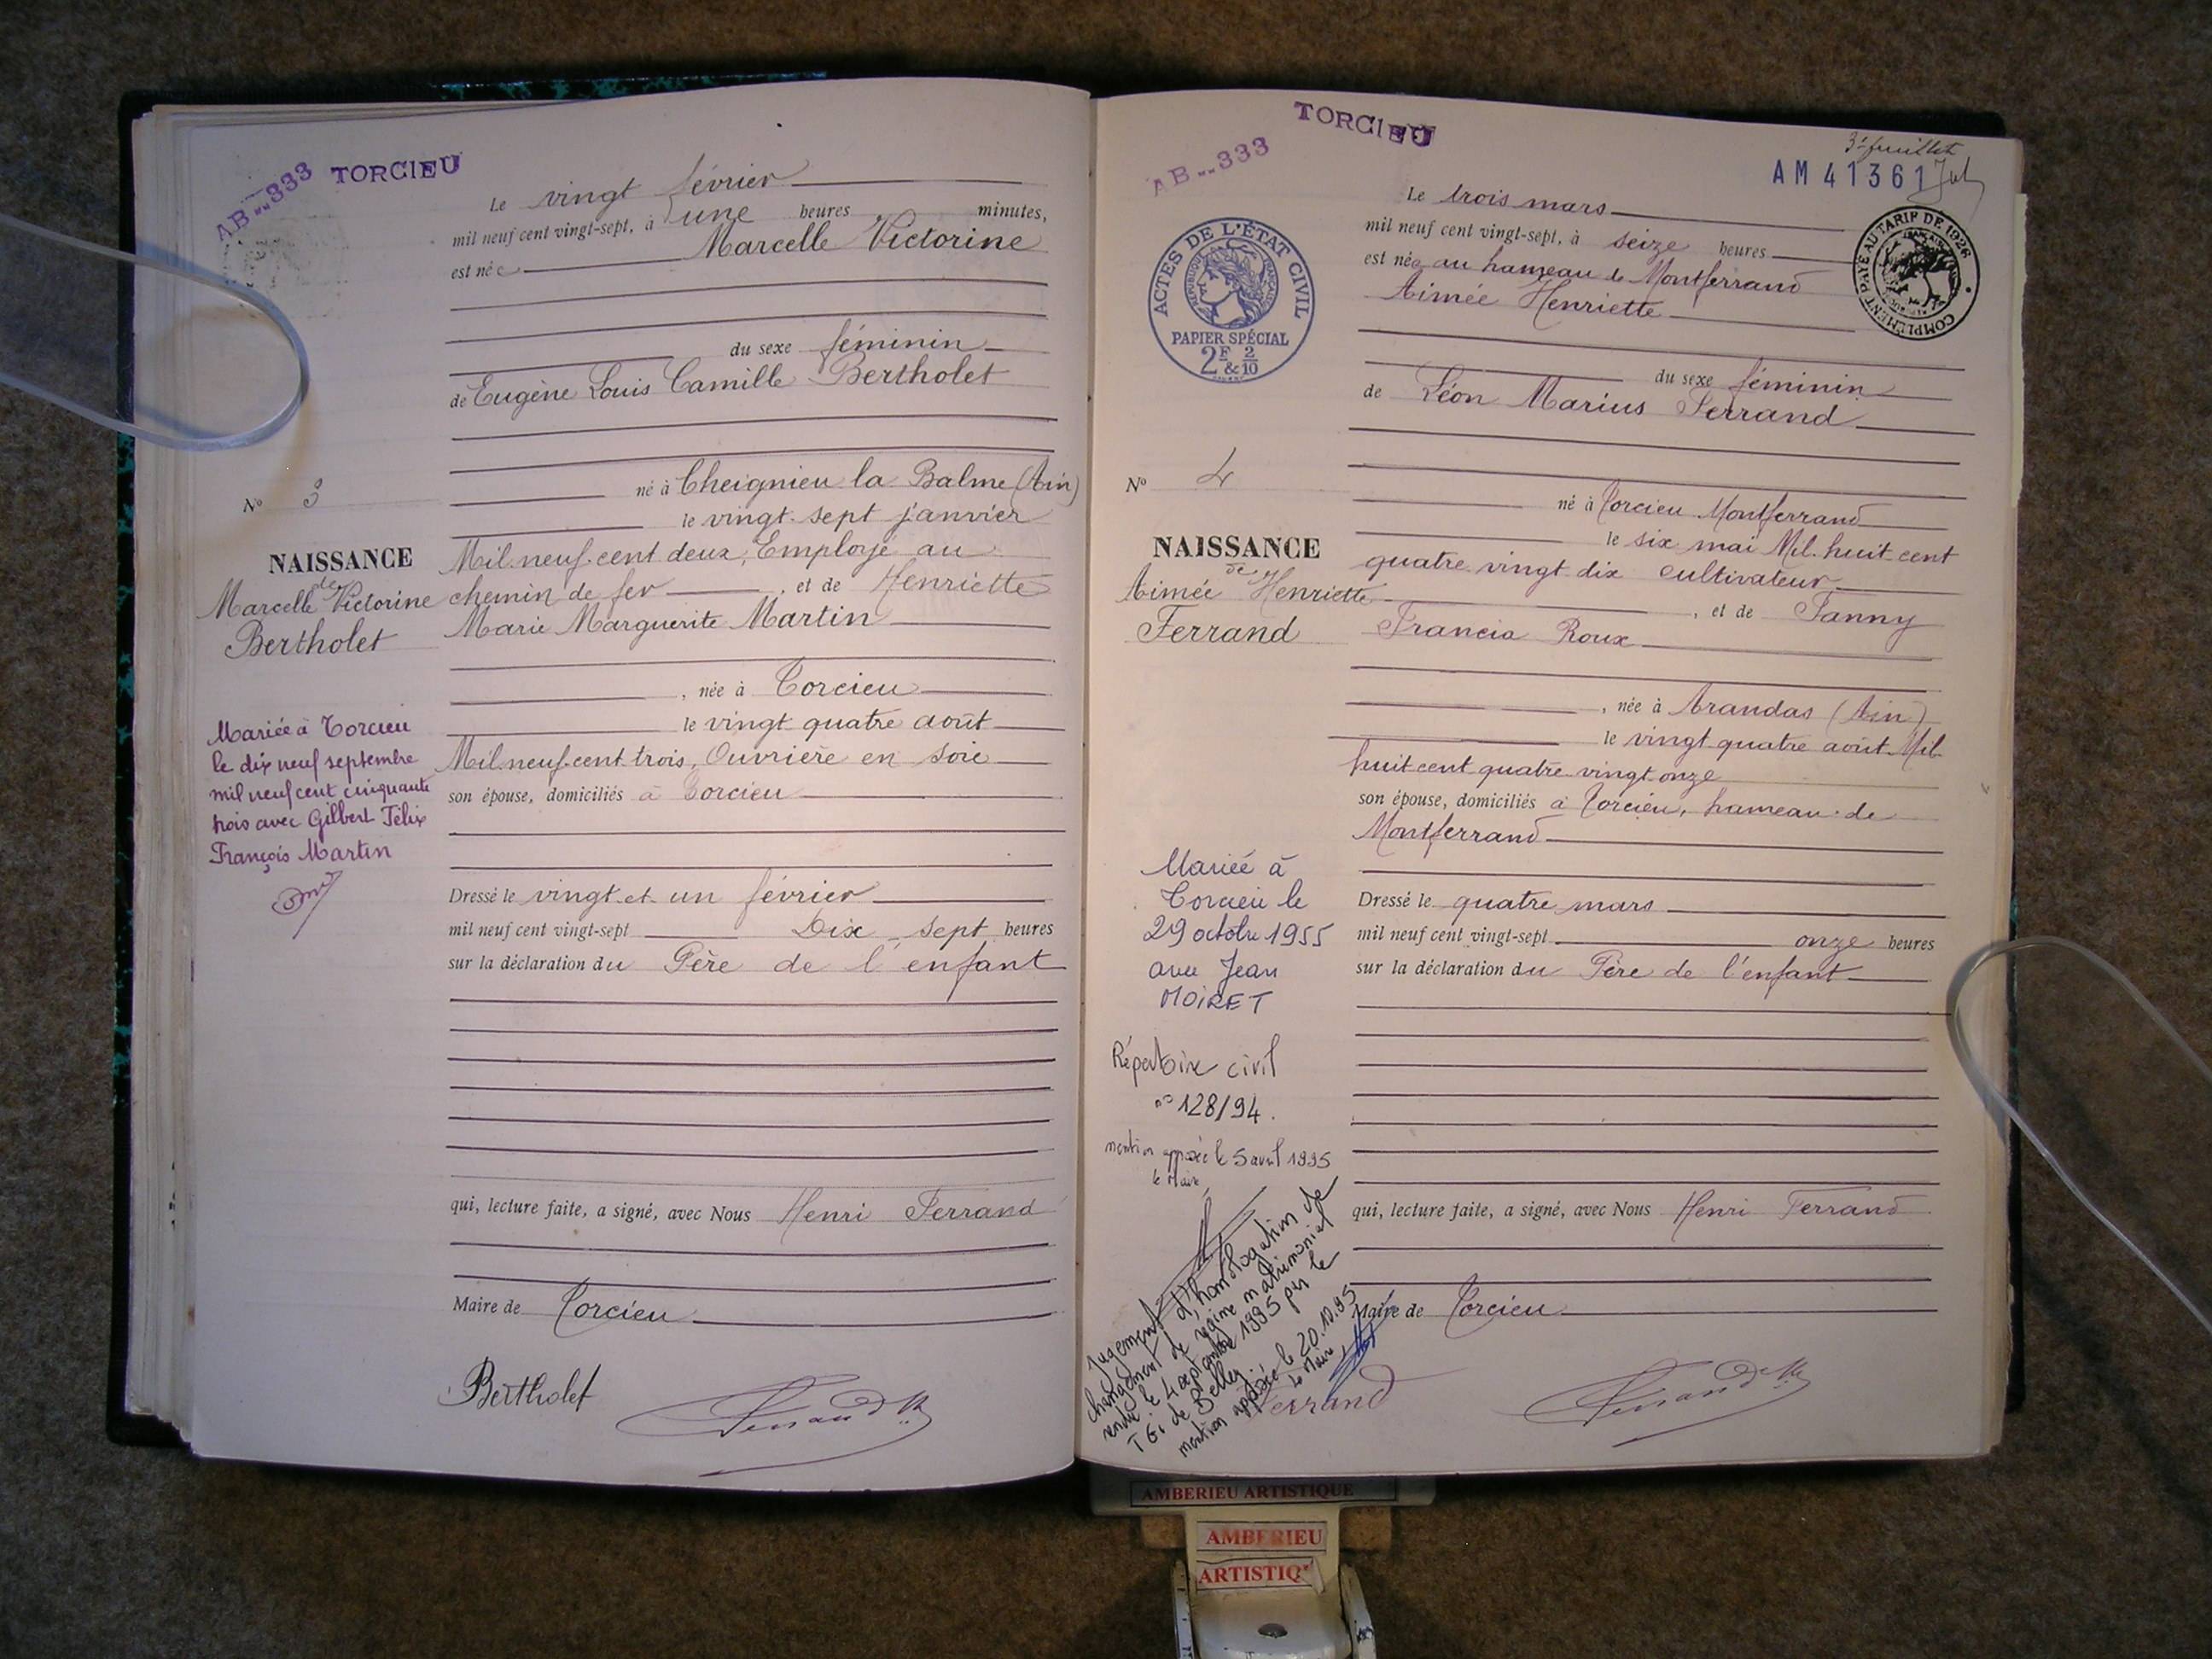 AB..333 TORCIEU
Le vingt février
mil neuf cent vingt-sept, à une heures minutes,
est née Marcelle Victorine
du sexe féminin
de Eugène Louis Camille Bertholet
né à Cheignieu la Balme (Ain)
le vingt-sept janvier
Mil neuf cent deux, Employé au
chemin de fer , et de Henriette
Marie Marguerite Martin
, née à Torcieu
le vingt quatre août
Mil neuf cent trois, Ouvrière en soie
son épouse, domiciliés à Torcieu
Dressé le vingt et un février
mil neuf cent vingt-sept Dix-sept heures
sur la déclaration du Père de l'enfant
qui, lecture faite, a signé, avec Nous Henri Ferrand
Maire de Torcieu
Bertholet
Ferrand
No 3
NAISSANCE
de
Marcelle Victorine
Bertholet
Mariée à Torcieu
le dix neuf septembre
mil neuf cent cinquante
trois avec Gilbert Félix
François Martin
AB..333 TORCIEU
3e feuillet
AM 41361
ACTES DE L'ÉTAT CIVIL
RÉPUBLIQUE FRANÇAISE
PAPIER SPÉCIAL
2F & 2/10
COMPLÉMENT PAYÉ AU TARIF DE 1926
Le trois mars
mil neuf cent vingt-sept, à seize heures
est née au hameau de Montferrand
Aimée Henriette
du sexe féminin
de Léon Marius Ferrand
né à Torcieu Montferrand
le six mai Mil huit cent
quatre vingt dix cultivateur
, et de Fanny
Francia Roux
, née à Arandas (Ain)
le vingt quatre août Mil
huit cent quatre vingt onze
son épouse, domiciliés à Torcieu, hameau de
Montferrand
Dressé le quatre mars
mil neuf cent vingt-sept onze heures
sur la déclaration du Père de l'enfant
qui, lecture faite, a signé, avec Nous Henri Ferrand
Maire de Torcieu
Ferrand
Ferrand
No 4
NAISSANCE
de
Aimée Henriette
Ferrand
Mariée à
Torcieu le
29 octobre 1955
avec Jean
MOIRET
Répertoire civil
n° 128/94.
mention apposée le 5 avril 1995
le Maire,
Jugement d'homologation de
changement de régime matrimonial
rendu le 4 septembre 1995 par le
TGI de Belley.
mention apposée le 20.10.95
Le Maire,
AMBERIEU ARTISTIQUE
AMBERIEU
ARTISTIQ